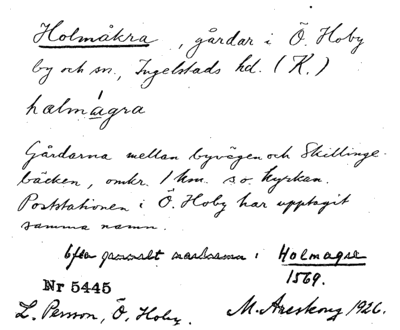 Holmåkra, gårdar i Ö. Hoby
by och sn., Ingelstads hd. (K.)
hạlmágra
Gårdarna mellan byvägen och Skillinge-
bäcken, omkr. 1 km. so. kyrkan.
Poststationen i Ö. Hoby har upptagit
samma namn.
Efter gammalt : Holmagre
1569.
Nr 5445
L. Persson, Ö. Hoby. M. Areskoug 1926.